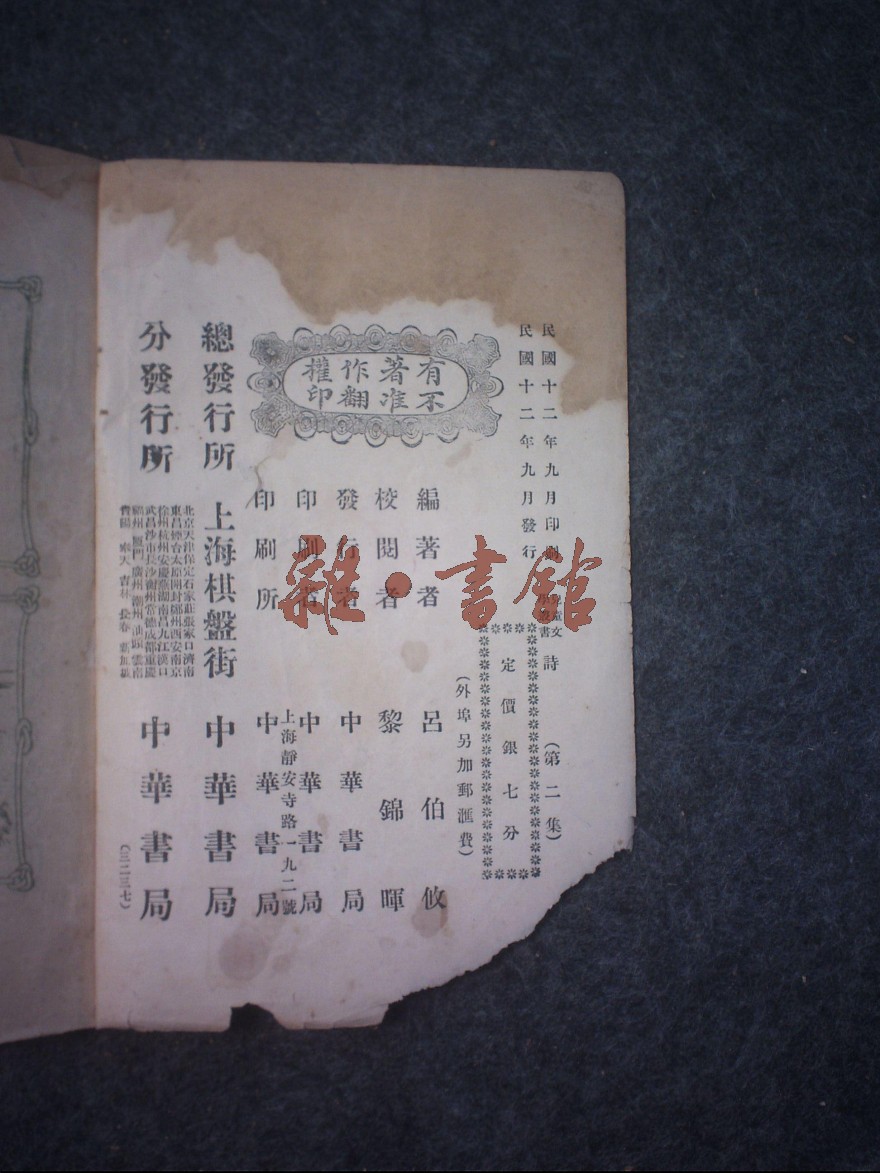 民國十二年九月印刷
民國十二年九月發行
兒童文學叢書 詩 （第二集）
定價銀七分
（外埠另加郵匯費）
有著作權
不准翻印
編著者 呂伯攸
校閱者 黎錦暉
發行者 中華書局
印刷者 中華書局
上海靜安寺路一九二號
印刷所 中華書局
總發行所 上海棋盤街 中華書局
分發行所 中華書局
北京天津保定石家莊張家口濟南
東昌煙台太原開封鄭州西安南京
徐州杭州安慶蕪湖南昌九江漢口
武昌沙市長沙衡州常德成都重慶
福州廈門廣州潮州汕頭雲南
貴陽 奉天 吉林 長春 新加坡
（三二三七）
雜·書館